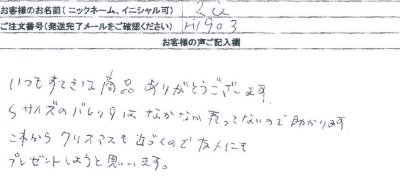 お客様のお名前（ニックネーム、イニシャル可）
ご注文番号（発送完了メールをご確認ください） M1903
お客様の声ご記入欄
いつもすてきな商品ありがとうございます
Sサイズのバレッタはなかなか売ってないので助かります
これからクリスマスも近づくので友人にも
プレゼントしようと思います。